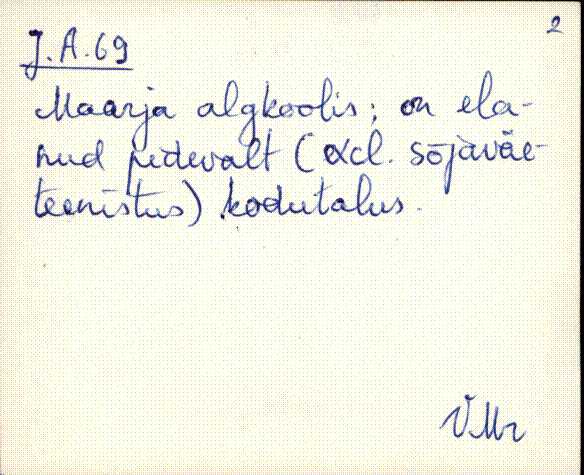 2
J.A.69
Maarja algkoolis; on ela-
nud pidevalt (excl. sõjaväe-
teenistus) kodutalus.
VMr